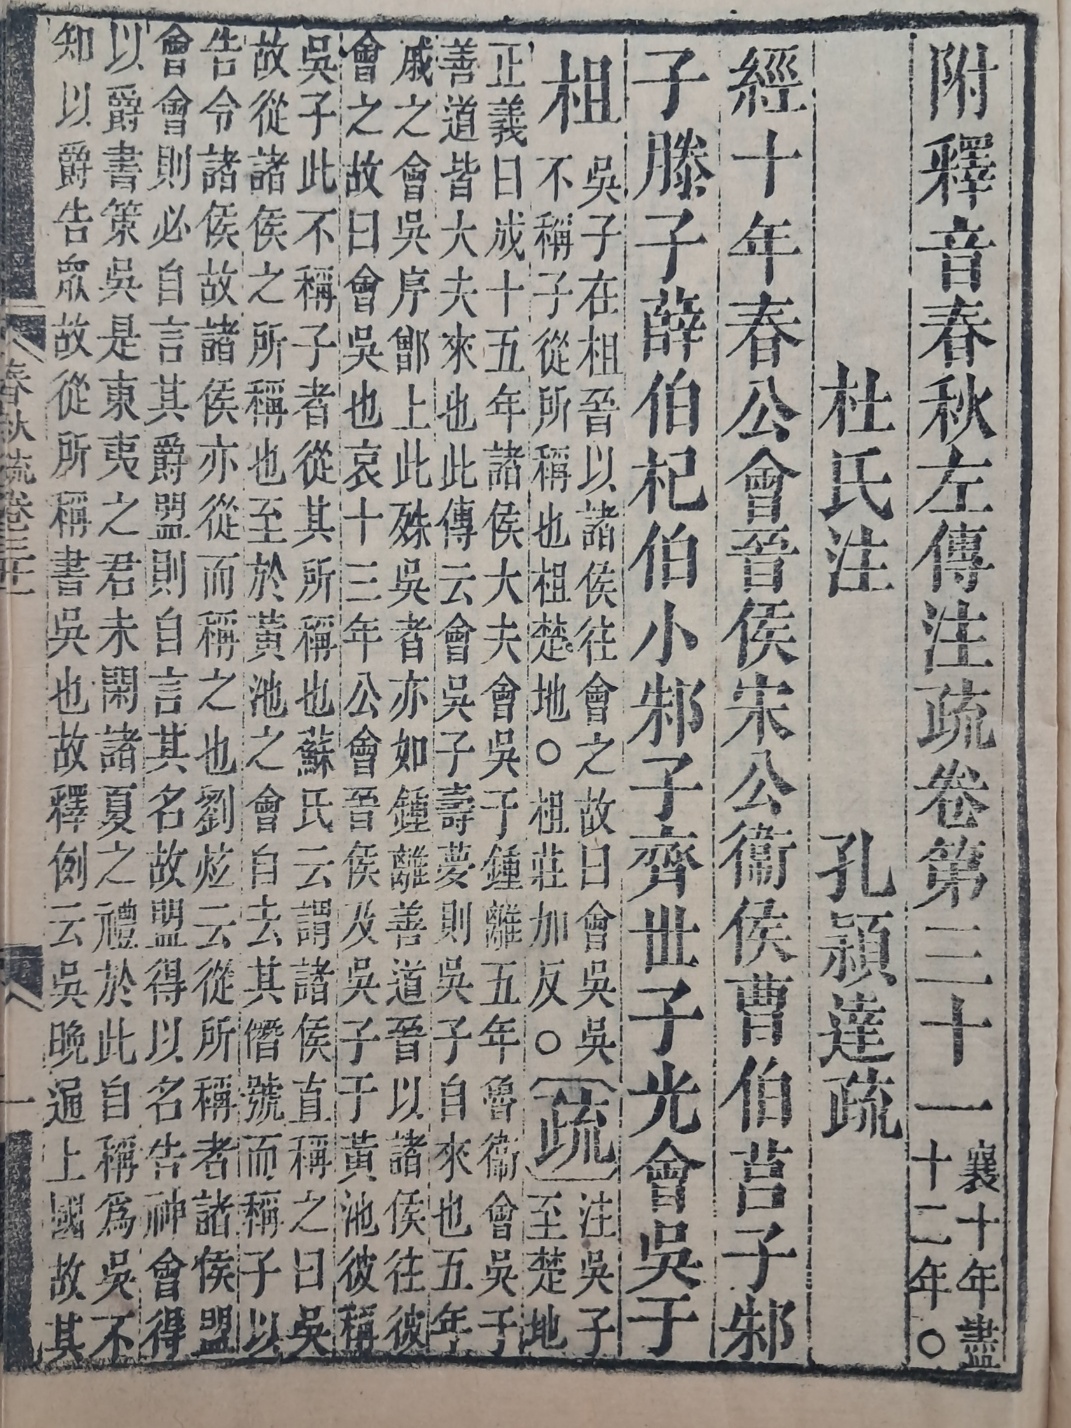 附釋音春秋左傳注疏卷第三十一
襄十年盡
十二年○
杜氏注　孔頴達疏
經十年春公會晉侯宋公衞侯曹伯莒子邾
子滕子薛伯杞伯小邾子齊丗子光會吳于
柤
吳子在柤晉以諸侯往會之故曰會吳吳
不稱子從所稱也柤楚地○柤莊加反○
疏
注吳子
至楚地
正義曰成十五年諸侯大夫會吳于鍾離五年魯衞會吳于
善道皆大夫來也此傳云會吳子壽夢則吳子自來也五年
戚之會吳序鄫上此殊吳者亦如鍾離善道晉以諸侯往彼
會之故曰會吳也哀十三年公會晉侯及吳子于黃池彼稱
吳子此不稱子者從其所稱也蘇氏云謂諸侯直稱之曰吳
故從諸侯之所稱也至於黃池之會自去其僭號而稱子以
告令諸侯故諸侯亦從而稱之也劉炫云從所稱者諸侯盟
會會則必自言其爵盟則自言其名故盟得以名告神會得
以爵書策吳是東夷之君未閑諸夏之禮於此自稱爲吳不
知以爵告眾故從所稱書吳也故釋例云吳晚通上國故其
春秋疏卷三十一
一